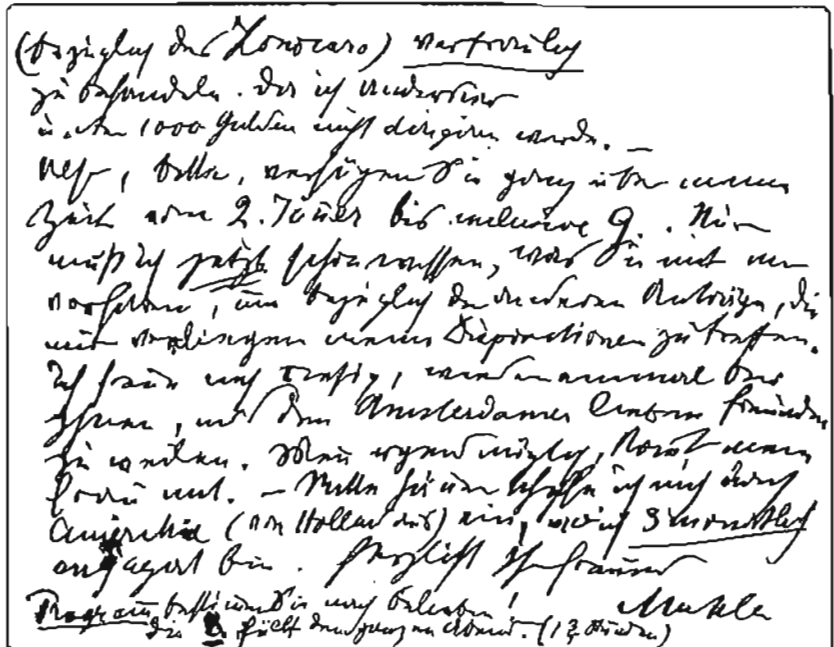 (bezüglich des Honorars) vertraulich
zu behandeln. Da ich anderswo
unter 1000 Gulden nicht dirigiren werde. —
Also, bitte, verfügen Sie ganz über meine
Zeit vom 2. Jänner bis inclusive 9. . Nur
muß ich jetzt schon wissen, was Sie mit mir
vorhaben, um bezüglich der anderen Anträge, die
mir vorliegen meine Dispositionen zu treffen.
Ich freue mich riesig, wieder einmal bei
Ihnen, und den Amsterdamer lieben Freunden
zu weilen. Wenn irgend möglich, kommt meine
Frau mit. — Mitte Jänner schiffe ich mich nach
Amerika (von Holland aus) ein, wo ich 3 monatlich
engagirt bin. Herzlichst Ihr
Mahler
Program bestimmen Sie nach Belieben!
Die füllt den ganzen Abend. (1½ Stunden)